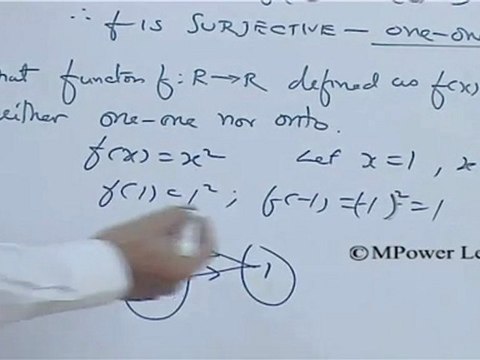 ∴ f IS SURJECTIVE — one-on
hat functon f: R→R defined as f(x)
either one-one nor onto.
f(x) = x² Let x=1, x
f(1) = 1² ; f(-1) = (-1)² = 1
1
©MPower Le